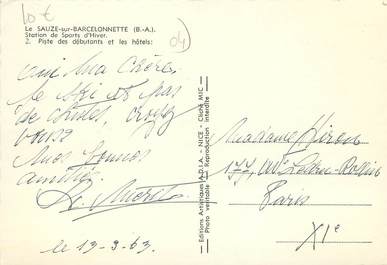 10 €
04
Le SAUZE-sur-BARCELONNETTE (B.-A.).
Station de Sports d'Hiver.
2. Piste des débutants et les hôtels.
oui ma chère
le ski et pas
de chutes, croyez
Mes bonnes
amitiés
le 13-3-63
Editions Artistiques "A.D.I.A. - NICE - Cliché MIC
Photo véritable - Reproduction interdite
Madame
177, Led. Rollin
Paris
XIe